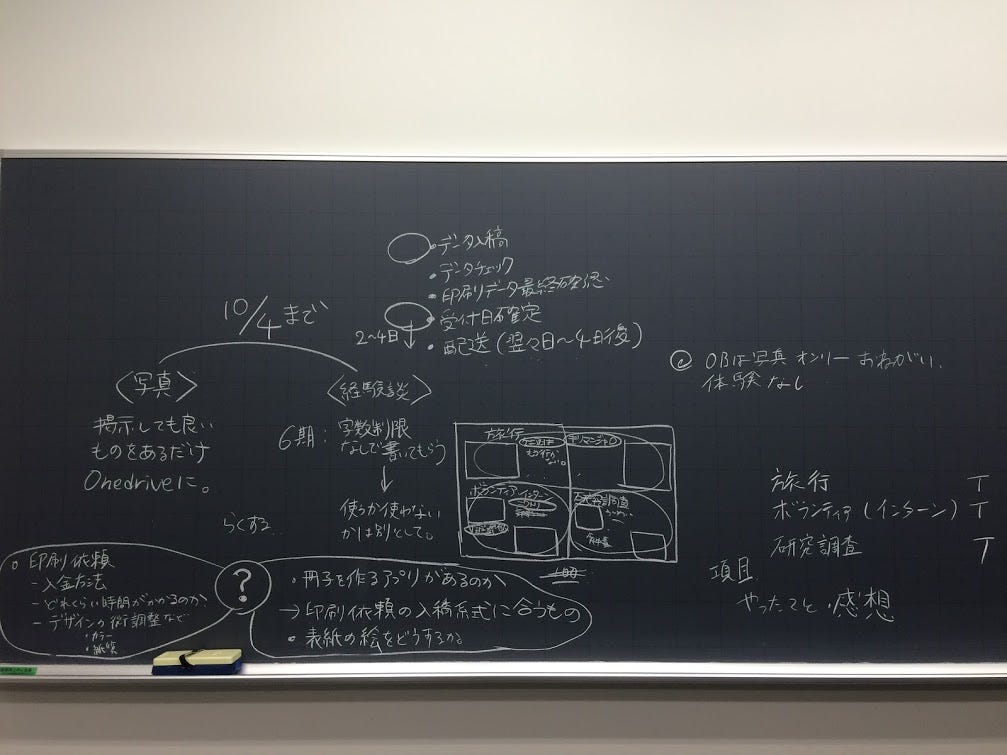 ・データ入稿
・データチェック
・印刷データ最終確認
・受付日確定
2〜4日
・配送(翌々日〜4日後)
10/4まで
<写真>
掲示しても良い
ものをあるだけ
Onedriveに。
<経験談>
6期:字数制限
なしで書いてもらう
↓
使うか使わない
かは別として。
らくする
旅行
キリマンジャロ
ボランティア インターン
研究調査
◎ OBは写真オンリーおねがい、
体験なし
旅行 T
ボランティア(インターン) T
研究調査 T
項目
やったこと・感想
○ 印刷依頼
- 入金方法
- どれくらい時間がかかるのか?
- デザインの微調整など
・カラー
・紙質
?
・冊子を作るアプリがあるのか
→印刷依頼の入稿形式に合うもの
・表紙の絵をどうするか